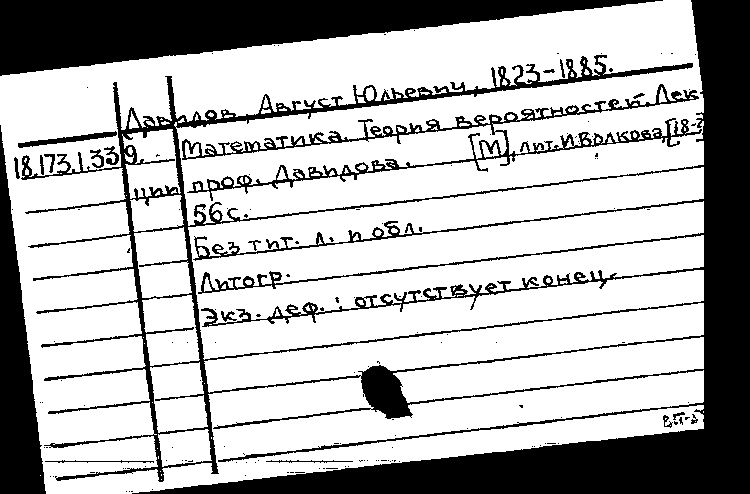 Давидов, Август Юльевич, 1823-1885.
18.173.1.339. Математика. Теория вероятностей. Лек-
ции проф. Давидова. [М], лит. И Волкова, [18-3
56 с.
Без тит. л. и обл.
Литогр.
Экз. деф.: отсутствует конец.